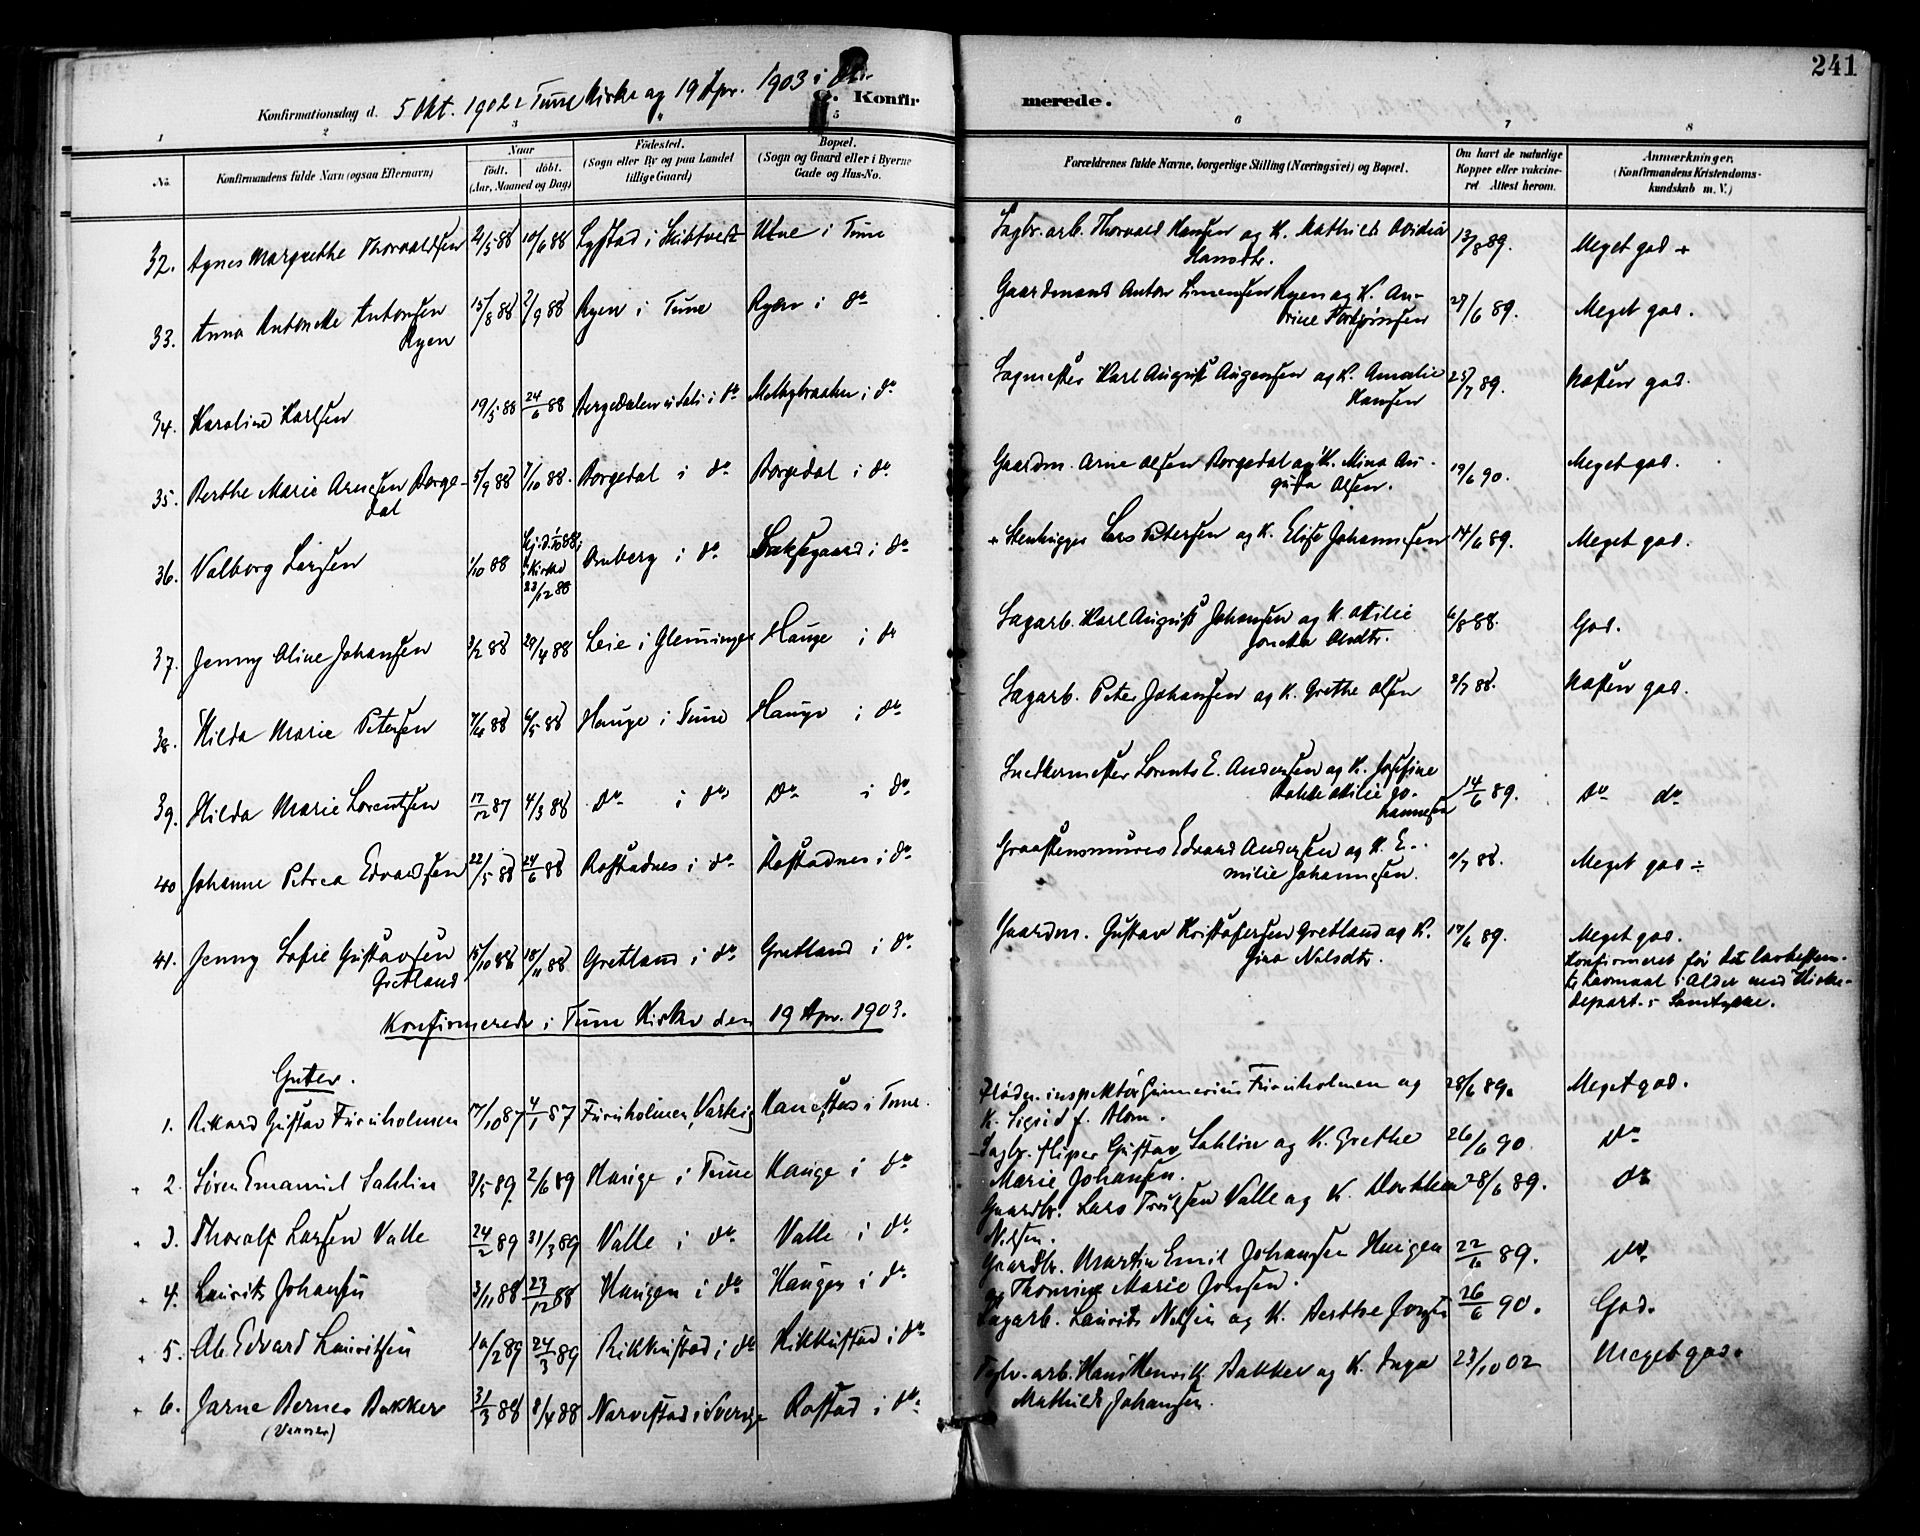 241
Konfirmationsdag d. 5 Okt. 1902 i Tune Kirke og 19 Apr. 1903 i do.
C. Konfirmerede.
1 2 3 5 6 7 8
No.
Konfirmandens fulde Navn (ogsaa Efternavn)
Naar
født. døbt.
(Aar, Maaned og Dag)
Fødested.
(Sogn eller By og paa Landet
tillige Gaard)
Bopæl.
(Sogn og Gaard eller i Byerne
Gade og Hus-No.
Forældrenes fulde Navne, borgerlige Stilling (Næringsvei) og Bopæl.
Om havt de naturlige
Kopper eller vakcine-
ret. Attest herom.
Anmærkninger.
(Konfirmandens Kristendoms-
kundskab m. V.)
32. Agnes Margrethe Thorvaldsen 2/5 88 10/6 88 i Skibtvedt Utne i Tune Sagbr. arb. Thorvald Hansen og K. Mathilde Ovidia 13/8 89. Meget god +
Hansdtr.
33. Anna Antonette Antonsen 15/8 88 2/9 88 Ryen i Tune Ryen i do Gaardmand Anton Simensen Ryen og K. An- 27/6 89. Meget god.
Ryen
34. Karoline Karlsen 19/5 88 24/6 88 i do i do Sagmester Karl August Augensen og K. Amalie 25/7 89. Næsten god.
Hansen
35. Berthe Marie Arnesen Borge- 5/9 88 7/10 88. Borgedal i do Borgedal i do Gaardm. Arne Olsen Borgedal og K. Mina Au- 19/6 90. Meget god.
dal
gusta Olsen.
36. Valborg Larsen 1/10 88 i Kirke 23/12 88 i do i do + Stenhugger Lars Petersen og K. Elise Johannesen 14/6 89. Meget god.
37. Jenny Oline Johansen 3/2 88 29/4 88 Leie i Glemminge Hauge i do Sagarb. Karl August Johansen og K. Otilie 6/8 88. God.
38. Hilda Marie Petersen 7/4 88 6/5 88 Hauge i Tune Hauge i do Sagarb. Peter Johansen og K. Grethe Olsen 2/7 88. Næsten god.
39. Hilda Marie Lorentsen 17/12 87 4/3 88 do i do do i do Snedkermester Lorents E. Andersen og K. Josefine 14/6 89. do do
Otilie Jo-
hannesen
40 Johanne Petrea Edvardsen 22/5 88 24/6 88 Rostadnes i do Rostadnes i do Graastensmurer Edvard Andersen og K. E- 2/7 88. Meget god ÷
milie Johannesen.
41. Jenny Sofie Gustavsen 15/10 88 18/11 88 Gretland i do Gretland i do Gaardm. Gustav Kristofersen Gretland og K. 17/6 89. Meget god.
Gretland
Gina Nilsdtr.
Konfirmeret før det lovbestem-
te Lavmaal i Alder med Kirke-
depart.s Samtykke.
Konfirmerede i Tune Kirke den 19 Apr. 1903.
Gutter.
1. Rikard Gustav Furuholmen 17/10 87 4/1 87 Furuholmen, Varteig i Tune. Flødn. inspektør Gunnerius Furuholmen og 28/6 89. Meget god.
K. Sigrid f. Blom.
2. Søren Emanuel Sahlin 3/5 89. 2/6 89 Hauge i Tune Hauge i do Sagbr. sliper Gustav Sahlin og K. Grethe 26/6 90 do
Marie Johansen.
3. Thoralf Larsen Valle 24/2 89 31/3 89 Valle i do Valle i do Gaardbr. Lars Truelsen Valle og K. Dorthea 28/6 89. do
Nilsen.
4. Laurits Johansen 3/11 88 23/12 88 Haugen i do Haugen i do Gaardbr. Martin Emil Johansen Haugen 22/6 89. do
og Thomine Marie Jonsen.
5. Ole Edvard Lauritsen 10/2 89 24/3 89 Rikkustad i do Rikkustad i do Sagarb. Laurits Nilsen og K. Berthe 26/6 90. God.
6. Jarne Bernes Bakker 31/3 88 8/4 88 Narvestad i Sverige Rostad i do Teglv. arb. Hans Henrik Bakker og K. Inga 23/10 02 Meget god.
(Venner)
Mathilde Johansen.